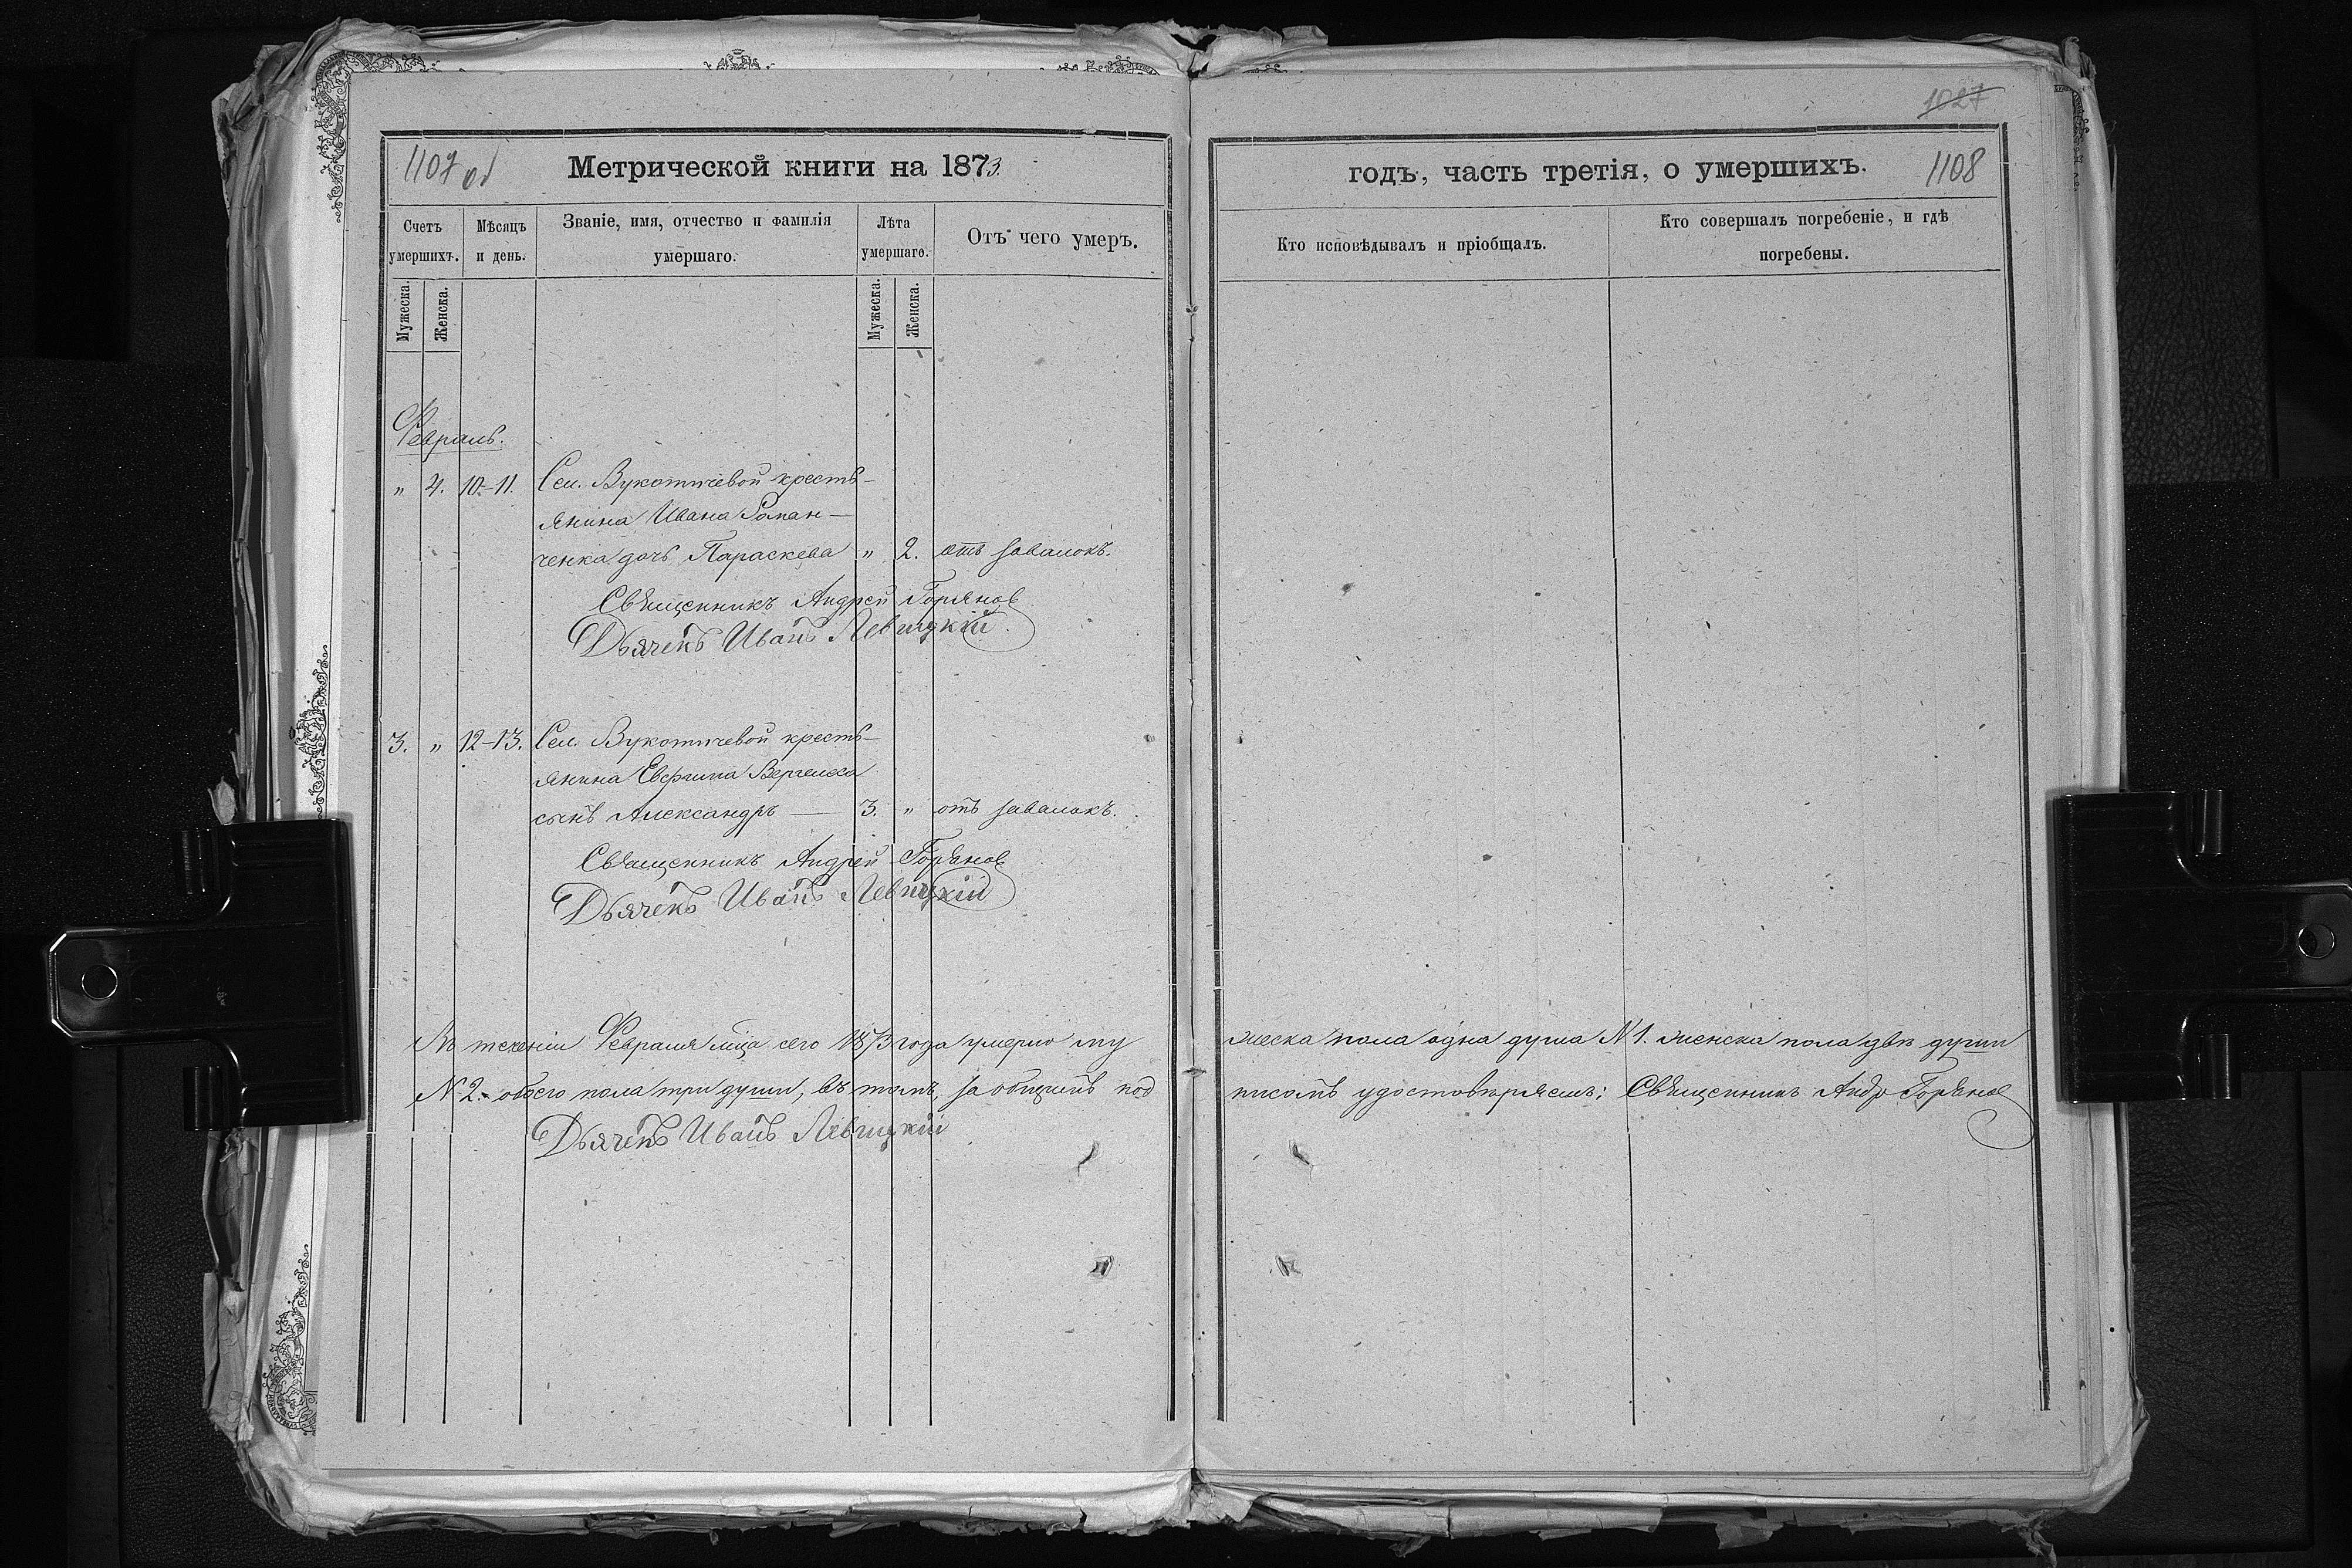 1027
1107 об
Метрической книги на 1873
годъ, часть третія, о умершихъ.
1108
Счетъ умершихъ.
Мѣсяцъ и день.
Званіе, имя, отчество и фамилія умершаго.
Лѣта умершаго.
Отъ чего умеръ.
Кто исповѣдывалъ и пріобщалъ.
Кто совершалъ погребеніе, и гдѣ погребены.
Мужеска. Женска.
Мужеска. Женска.
Февраль.
" 4. 10-11. Сел. Вукотичевой кресть-
янина Ивана Роман-
ченка дочь Параскева " 2. отъ завалокъ.
Священникъ Андрей Горяновъ
Дьячекъ Иванъ Левицкій
3. " 12-13. Сел. Вукотичевой кресть-
янина Евфима
сынъ Александръ — 3. " отъ завалокъ.
Священникъ Андрей Горяновъ
Дьячекъ Иванъ Левицкій
Въ теченіи Февраля м҃ца сего 1873 года умерло му
жеска пола одна душа N 1. женска пола двѣ души
N 2. обоего пола три души, въ томъ, за общимъ под
писомъ удостовѣряемъ: Священникъ Андр Горяновъ
Дьячекъ Иванъ Левицкій